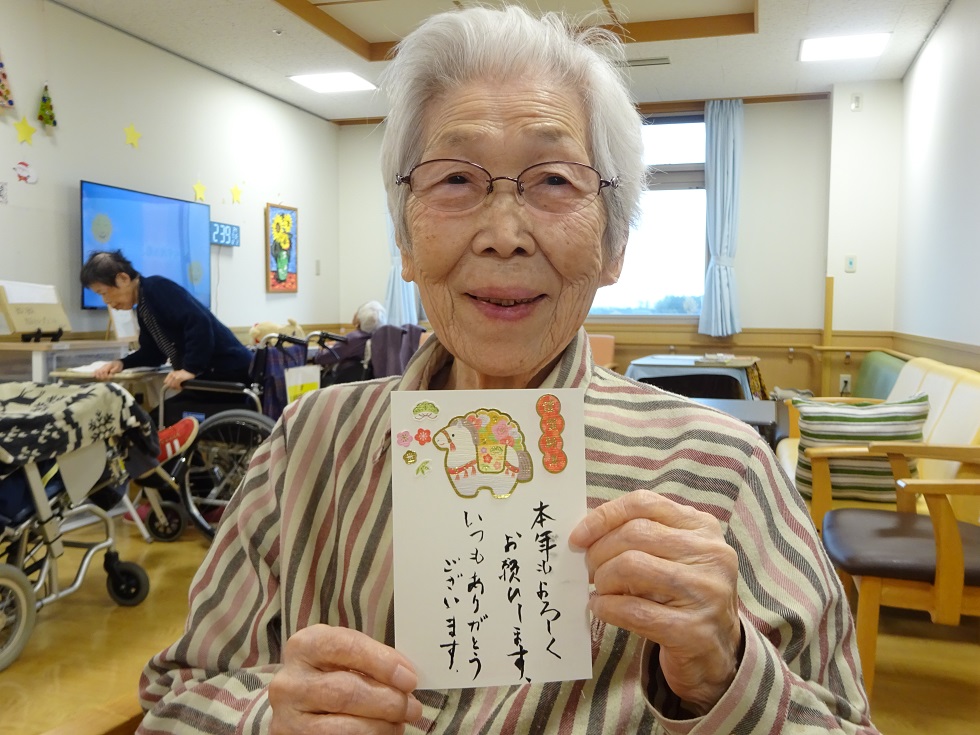 本年もよろしく
お願いします、
いつもありがとう
ございます.
2:39